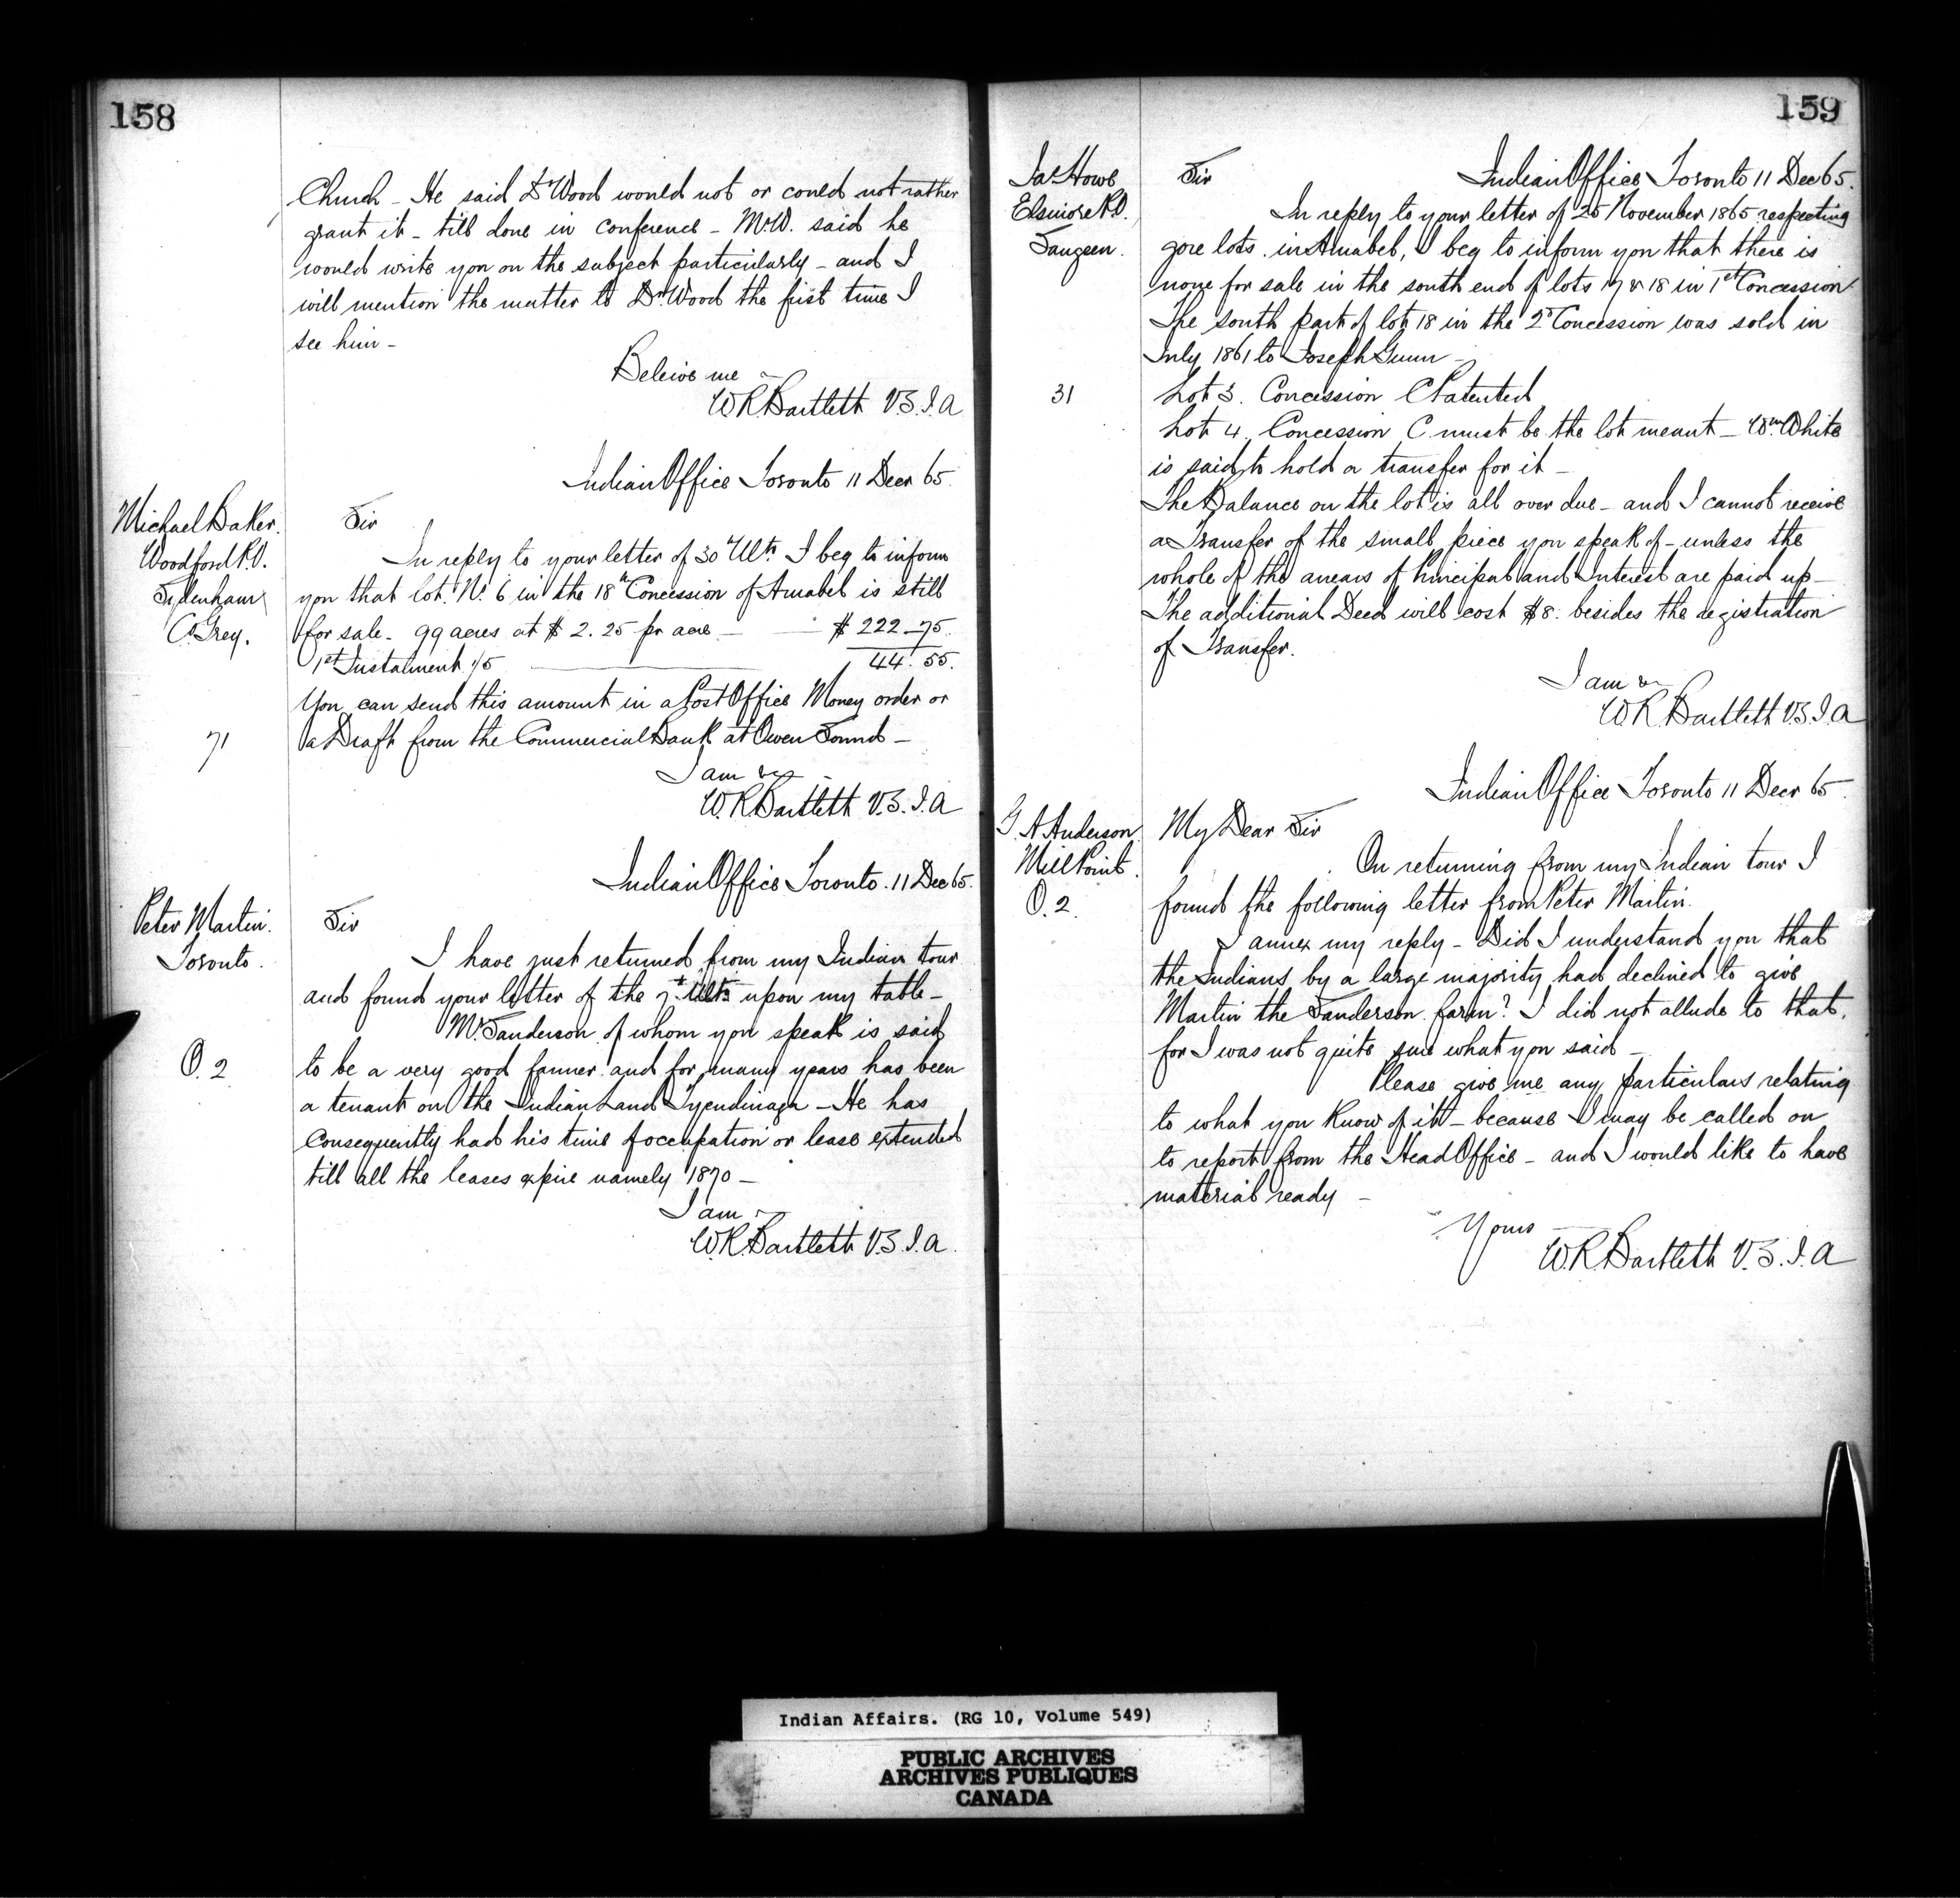 158
Church - He said Dr Wood would not or could not rather
grant it - till done in conference - Mr W. said he
would write you on the subject particularly - and I
will mention the matter to Dr Wood the first time I
see him -
Beleive me
W.R. Bartlett V.S.I.A
Indian Office Toronto 11 Decr 65.
Michael Baker.
Woodford P.O.
Sydenham
Co Grey.
71
Sir
In reply to your letter of 30th Ulto I beg to inform
you that lot. No. 6 in the 18th Concession of Amabel is still
for sale - 99 acres at $ 2.25 pr acre - $ 222.75.
1st Instalment 1/5 44.55.
You can send this amount in a Post Office Money order or
a Draft from the Commercial Bank at Owen Sound -
I am &c
W.R. Bartlett V.S.I.A
Indian Office Toronto. 11 Dec 65.
Peter Martin.
Toronto.
O. 2
Sir
I have just returned from my Indian tour
and found your letter of the 7th Ulto upon my table -
Mr Sanderson of whom you speak is said
to be a very good farmer and for many years has been
a tenant on the Indian Land Tyendinaga - He has
Consequently had his time of occupation or lease extended
till all the leases expire namely 1870 -
I am
W.R. Bartlett V.S.I.A.
159
Jas Howe
Elsinore P.O.
Saugeen.
31
Indian Office Toronto 11 Dec 65.
Sir
In reply to your letter of 25 November 1865 respecting
gore lots in Amabel, I beg to inform you that there is
none for sale in the south end of lots 17 & 18 in 1st Concession
The south part of lot 18 in the 2d Concession was sold in
July 1861 to Joseph Gunn -
Lot 3. Concession C Patented
Lot 4. Concession C. must be the lot meant - Wm White
is said to hold a transfer for it -
The Balance on the lot is all over due - and I cannot receive
a Transfer of the small piece you speak of - unless the
whole of the arrears of Principal and Interest are paid up -
The additional Deed will cost $8. besides the registration
of Transfer.
I am &c
W.R. Bartlett V.S.I.A
Indian Office Toronto 11 Decr 65.
G. A Anderson
Mill Point.
O. 2.
My Dear Sir
On returning from my Indian tour I
found the following letter from Peter Martin.
I annex my reply - Did I understand you that
the Indians by a large majority had declined to give
Martin the Sanderson farm? I did not allude to that,
for I was not quite sure what you said -
Please give me any particulars relating
to what you know of it - because I may be called on
to report from the Head Office - and I would like to have
material ready -
Yours
W.R. Bartlett V.S.I.A
Indian Affairs. (RG 10, Volume 549)
PUBLIC ARCHIVES
ARCHIVES PUBLIQUES
CANADA